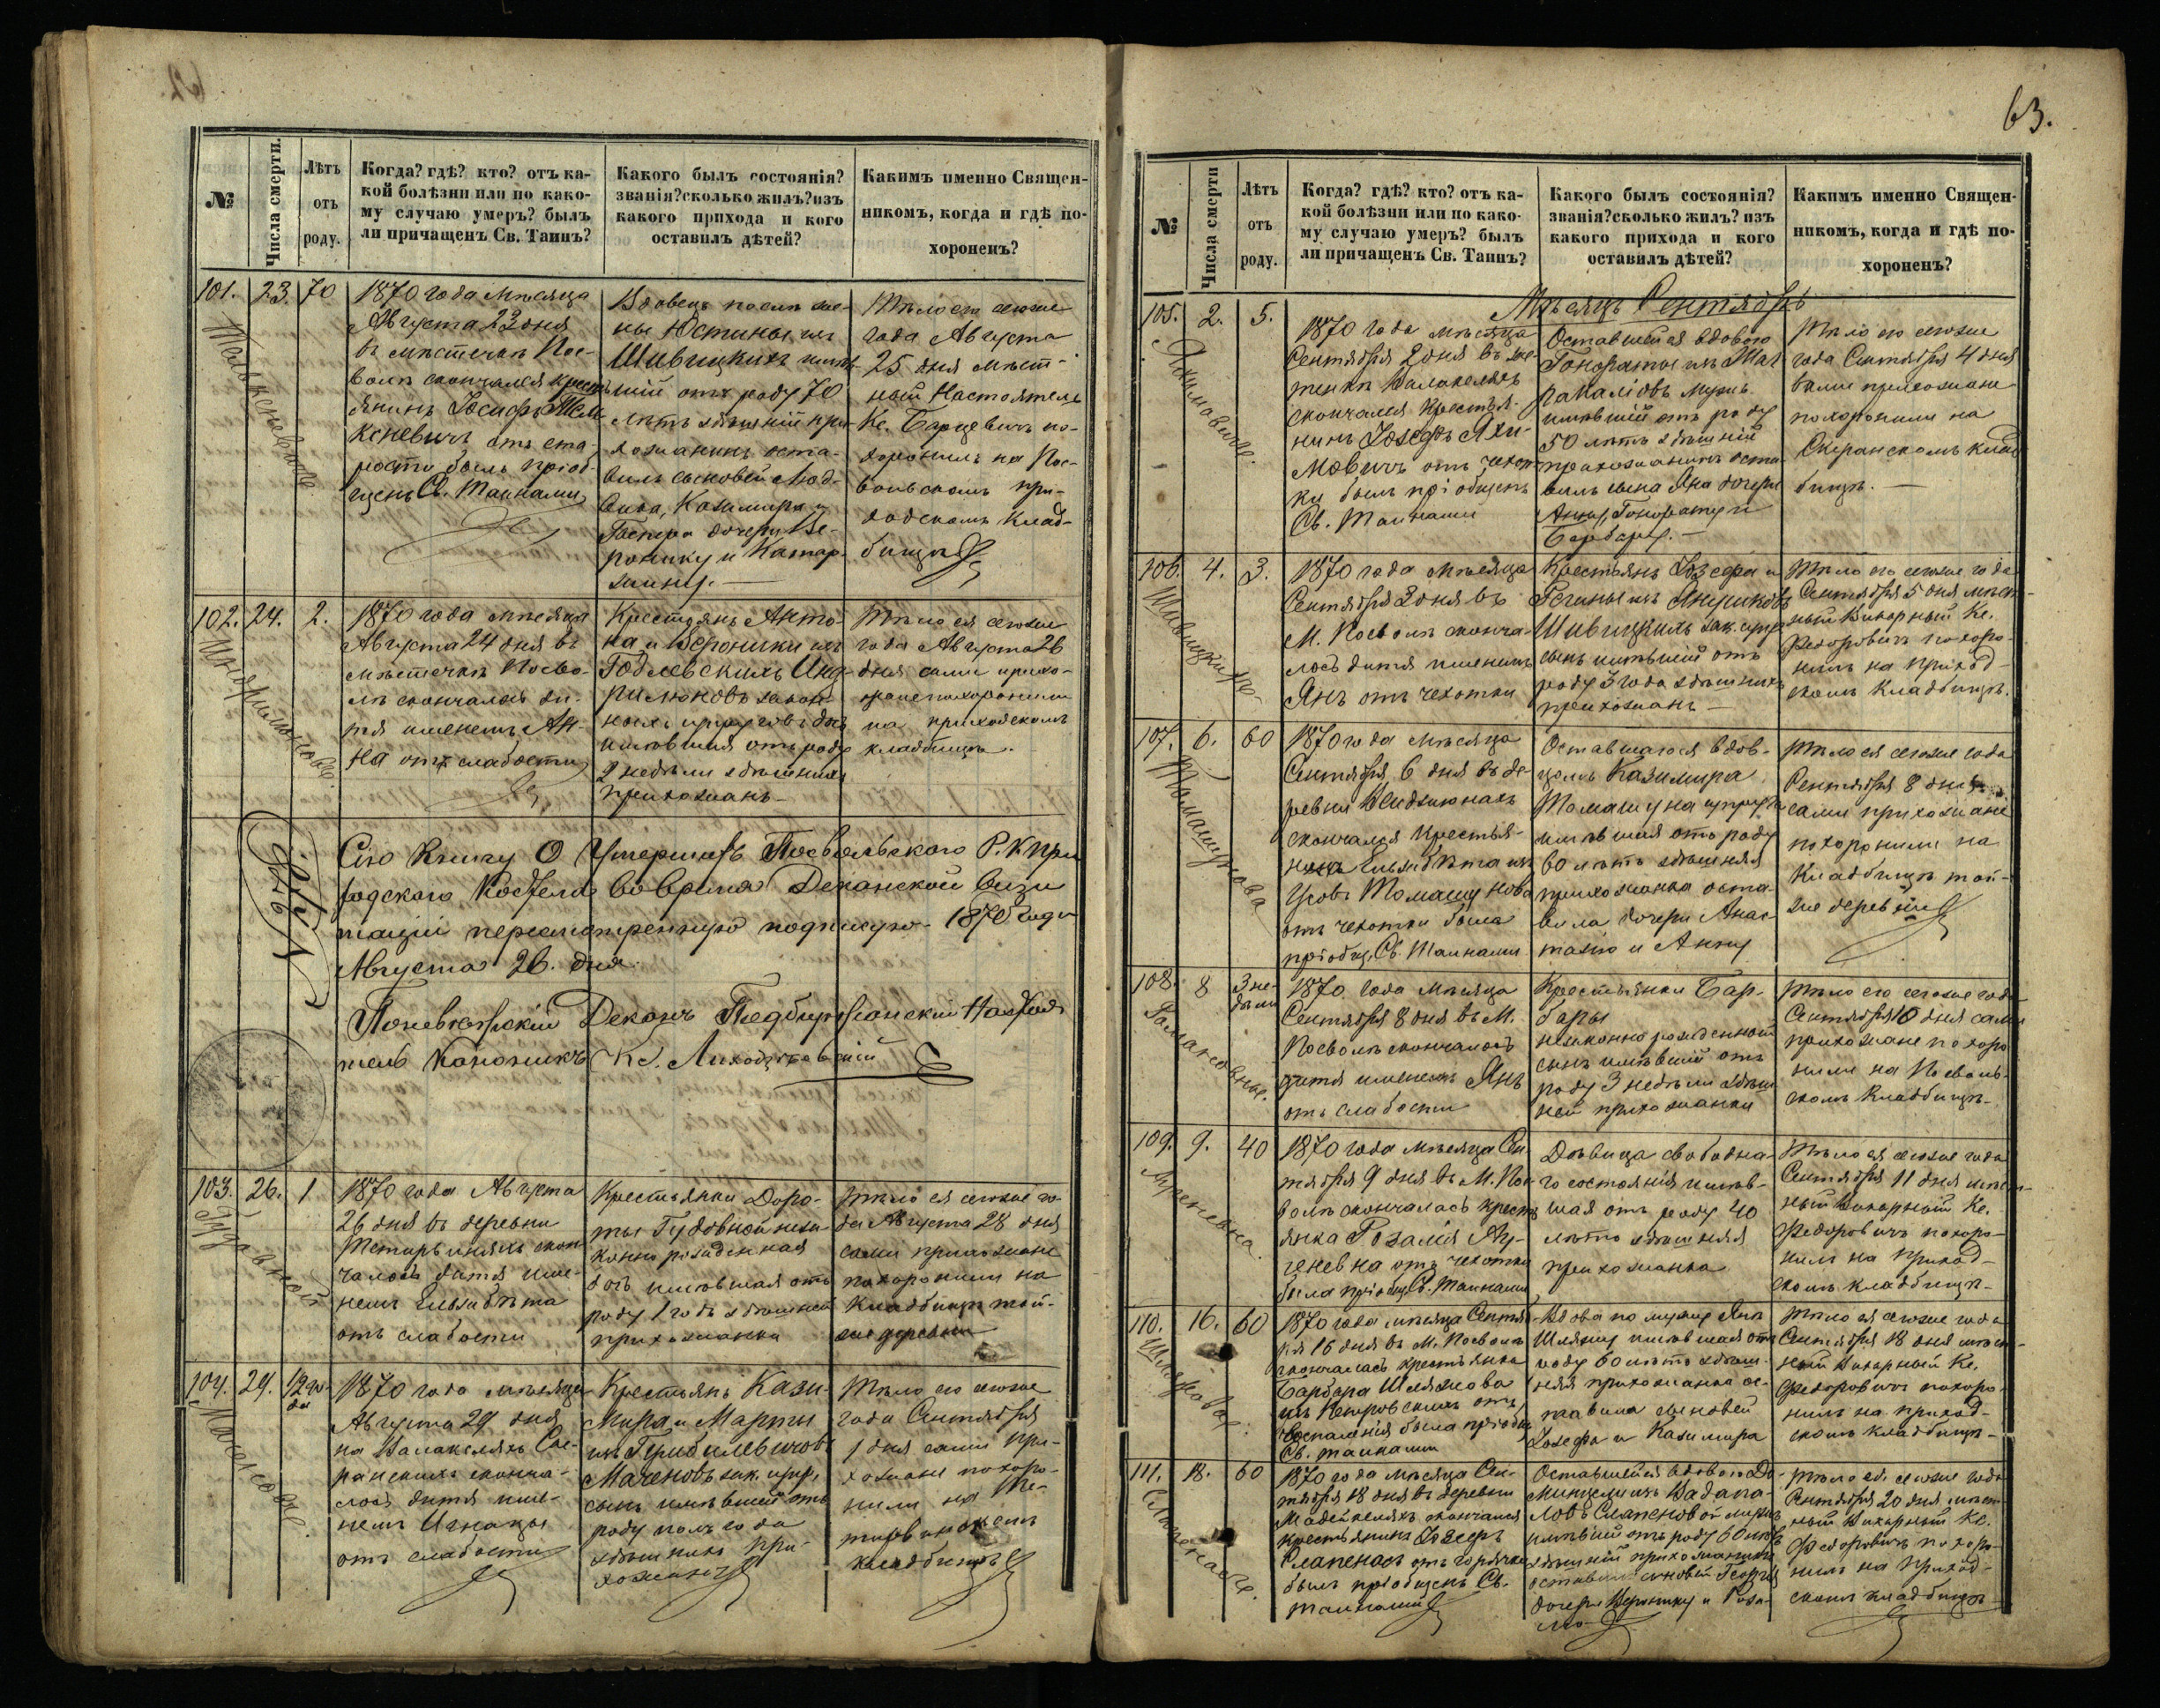 63.
№
Числа смерти.
Лѣтъ
отъ
роду.
Когда? гдѣ? кто? отъ ка-
кой болѣзни или по како-
му случаю умеръ? былъ
ли причащенъ Св. Таинъ?
Какого былъ состоянія?
званія? сколько жилъ? изъ
какого прихода и кого
оставилъ дѣтей?
Какимъ именно Священ-
никомъ, когда и гдѣ по-
хороненъ?
101.
23.
70
1870 года мѣсяца
Августа 23 дня
въ мѣстечкѣ Пос-
волѣ скончался крест
янинъ Іосифъ
отъ ста-
рости былъ пріоб-
щенъ Св. Таинами
Вдовецъ послѣ же-
ны Юстины изъ
Шивицкихъ имѣв-
шій отъ роду 70
лѣтъ здѣшній при-
хожанинъ оста-
вилъ сыновей Люд-
вика, Казимира и
Гаспера дочери Ве-
ронику и Катар-
жину.
Тѣло его сегоже
года Августа
25 дня мѣст-
ный Настоятель
Кс. Барцевичъ по-
хоронилъ на Пос-
вольскомъ при-
ходскомъ клад-
бищѣ
102.
24.
2.
1870 года мѣсяца
Августа 24 дня въ
мѣстечкѣ Посво-
лѣ скончалось ди-
тя именемъ Ан-
на отъ слабости
Крестьянъ Анто-
на и Вероники изъ
Годлевскихъ
закон-
ныхъ супруговъ дочь
имѣвшая отъ роду
2 недѣли здѣшнихъ
прихожанъ
Тѣло ея сегоже
года Августа 26
дня сами прихо-
жане похоронили
на приходскомъ
кладбищѣ.
Сію Книгу О Умершихъ Посвольскаго Р. К при
ходскаго Костела во время Деканской визи
таціи пересмотренную подписую 1870 года
Августа 26. дня.
Поневѣжскій Деканъ Подбиржанскій Настоя
тель Каноникъ Кс.
103.
26.
1
1870 года Августа
26 дня въ деревни
скон
чалось дитя име-
немъ Ельзбѣта
отъ слабости
Крестьянки Доро-
ты Гудовной неза-
конно рожденная
дочь имѣвшая отъ
роду 1 годъ здѣшней
прихожанки
Тѣло ея сегоже го-
да Августа 28 дня
сами прихожане
похоронили на
кладбищѣ той-
же деревни
104.
29.
1870 года мѣсяца
Августа 29 дня
на
сконча-
лось дитя име-
немъ Игнацы
отъ слабости
Крестьянъ Кази-
мира и Марты
изъ
зак. супр.
сынъ имѣвшій отъ
роду полъ года
здѣшнихъ при-
хожанъ
Тѣло его сегоже
года Сентября
1 дня сами при-
хожане похоро-
нили на
кладбищѣ
№
Числа смерти
Лѣтъ
отъ
роду.
Когда? гдѣ? кто? отъ ка-
кой болѣзни или по како-
му случаю умеръ? былъ
ли причащенъ Св. Таинъ?
Какого былъ состоянія?
званія? сколько жилъ? изъ
какого прихода и кого
оставилъ дѣтей?
Какимъ именно Священ-
никомъ, когда и гдѣ по-
хороненъ?
Мѣсяцъ Сентябрь
105.
2.
5.
1870 года мѣсяца
Сентября 2 дня въ
скончался крестья-
нинъ Іозефъ Яхи-
мовичъ отъ чехот-
ки былъ пріобщенъ
Св. Таинами
Оставшейся вдовою
Гонораты изъ
мужъ
имѣвшій отъ роду
50 лѣтъ здѣшній
прихожанинъ оста-
вилъ сына Яна дочери
Анну, Гонорату и
Барбару.
Тѣло его сегоже
года Сентября 4 дня
сами прихожане
похоронили на
клад
бищѣ.
106.
4.
3.
1870 года мѣсяца
Сентября 3 дня въ
М. Посволѣ сконча
лось дитя именемъ
Янъ отъ чехотки
Крестьянъ Іозефа и
Регины изъ
Шивицкихъ зак. супр.
сынъ имѣвшій отъ
роду 3 года здѣшнихъ
прихожанъ
Тѣло его сегоже года
Сентября 5 дня мѣст-
ный Викарный Кс.
Федоровичъ похоро-
нилъ на приход-
скомъ кладбищѣ.
107.
6.
60
1870 года мѣсяца
Сентября 6 дня въ де-
ревни
скончалась крестья-
нка Ельзбѣта изъ
отъ чехотки была
пріобщ. Св. Таинами
Оставшагося вдов-
цомъ Казимира
Томашуна супруга
имѣвшая отъ роду
60 лѣтъ здѣшняя
прихожанка оста-
вила дочери Анас-
тазію и Анну
Тѣло ея сегоже года
Сентября 8 дня
сами прихожане
похоронили на
кладбищѣ той-
же деревни
108.
8
3 не-
дѣли
1870 года мѣсяца
Сентября 8 дня въ М.
Посволѣ скончалось
дитя именемъ Янъ
отъ слабости
Крестьянки Бар-
бары
незаконно рожденной
сынъ имѣвшій отъ
роду 3 недѣли здѣш
ней прихожанки
Тѣло его сегоже года
Сентября 10 дня сами
прихожане похоро
нили на Посволь-
скомъ кладбищѣ
109.
9.
40
1870 года мѣсяца Сен
тября 9 дня въ М. Пос
волѣ скончалась крест
янка Розалія
отъ чехотки
была пріобщ. Св. Таинами
Дѣвица свободна-
го состоянія имѣв-
шая отъ роду 40
лѣтъ здѣшняя
прихожанка
Тѣло ея сегоже года
Сентября 11 дня мѣст-
ный Викарный Кс.
Федоровичъ похоро-
нилъ на приход-
скомъ кладбищѣ
110.
16.
60
1870 года мѣсяца Сентяб
ря 16 дня въ М. Посволѣ
скончалась крестьянка
Барбара
изъ Петровскихъ отъ
воспаленія была пріобщ
Св. таинами
Вдова по мужу Яна
имѣвшая отъ
роду 60 лѣтъ здѣш-
няя прихожанка ос-
тавила сыновей
Іозефа и Казимира
Тѣло ея сегоже года
Сентября 18 дня мѣст-
ный Викарный Кс.
Федоровичъ похоро-
нилъ на приход-
скомъ кладбищѣ
111.
18.
60
1870 года мѣсяца Сен-
тября 18 дня въ деревни
скончался
крестьянинъ Іозефъ
отъ горячки
былъ пріобщенъ Св.
таинами
Оставшейся вдовою До-
мицели изъ
мужъ
имѣвшій отъ роду 60 лѣтъ
здѣшній прихожанинъ
оставилъ сыновей Георгія
дочери Веронику и Роза-
лію
Тѣло его сегоже года
Сентября 20 дня мѣст-
ный Викарный Кс.
Федоровичъ похоро-
нилъ на приход-
скомъ кладбищѣ